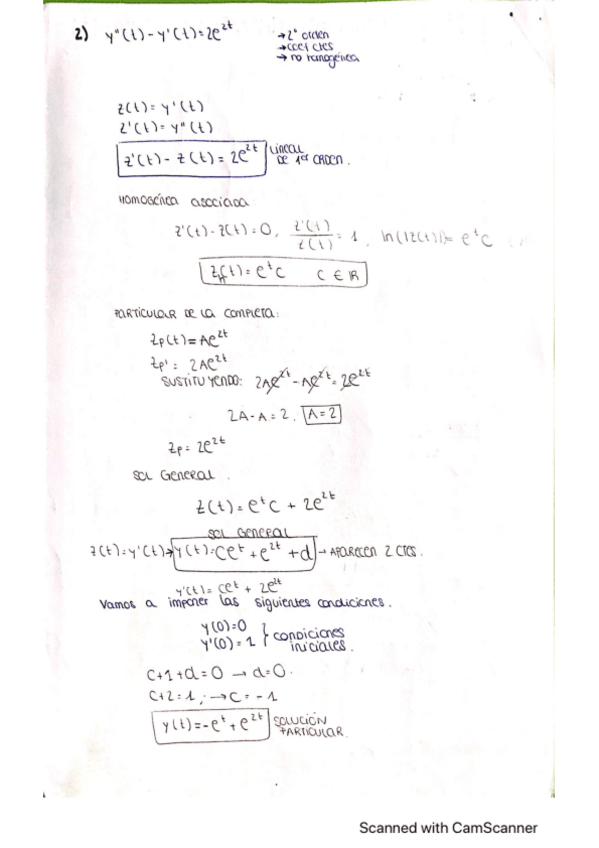 2) y''(t) - y'(t) = 2e^{2t}
→ 2º orden
→ coef ctes
→ no homogénea
z(t) = y'(t)
z'(t) = y''(t)
z'(t) - z(t) = 2e^{2t} LINEAL DE 1er ORDEN.
Homogénea asociada
z'(t) - z(t) = 0, z'(t)/z(t) = 1, ln(|z(t)|) = e^t c
z_H(t) = e^t c C ∈ ℝ
PARTICULAR DE LA COMPLETA:
z_p(t) = Ae^{2t}
z_p' = 2Ae^{2t}
SUSTITUYENDO: 2Ae^{2t} - Ae^{2t} = 2e^{2t}
2A - A = 2, A = 2
z_p = 2e^{2t}
Sol General.
z(t) = e^t c + 2e^{2t}
Sol General
z(t) = y'(t) → y(t) = ce^t + e^{2t} + d → APARECEN 2 CTES.
y'(t) = ce^t + 2e^{2t}
Vamos a imponer las siguientes condiciones.
y(0) = 0
y'(0) = 1 } condiciones iniciales.
c + 1 + d = 0 → d = 0.
c + 2 = 1; → c = -1
y(t) = -e^t + e^{2t} SOLUCIÓN PARTICULAR.
Scanned with CamScanner